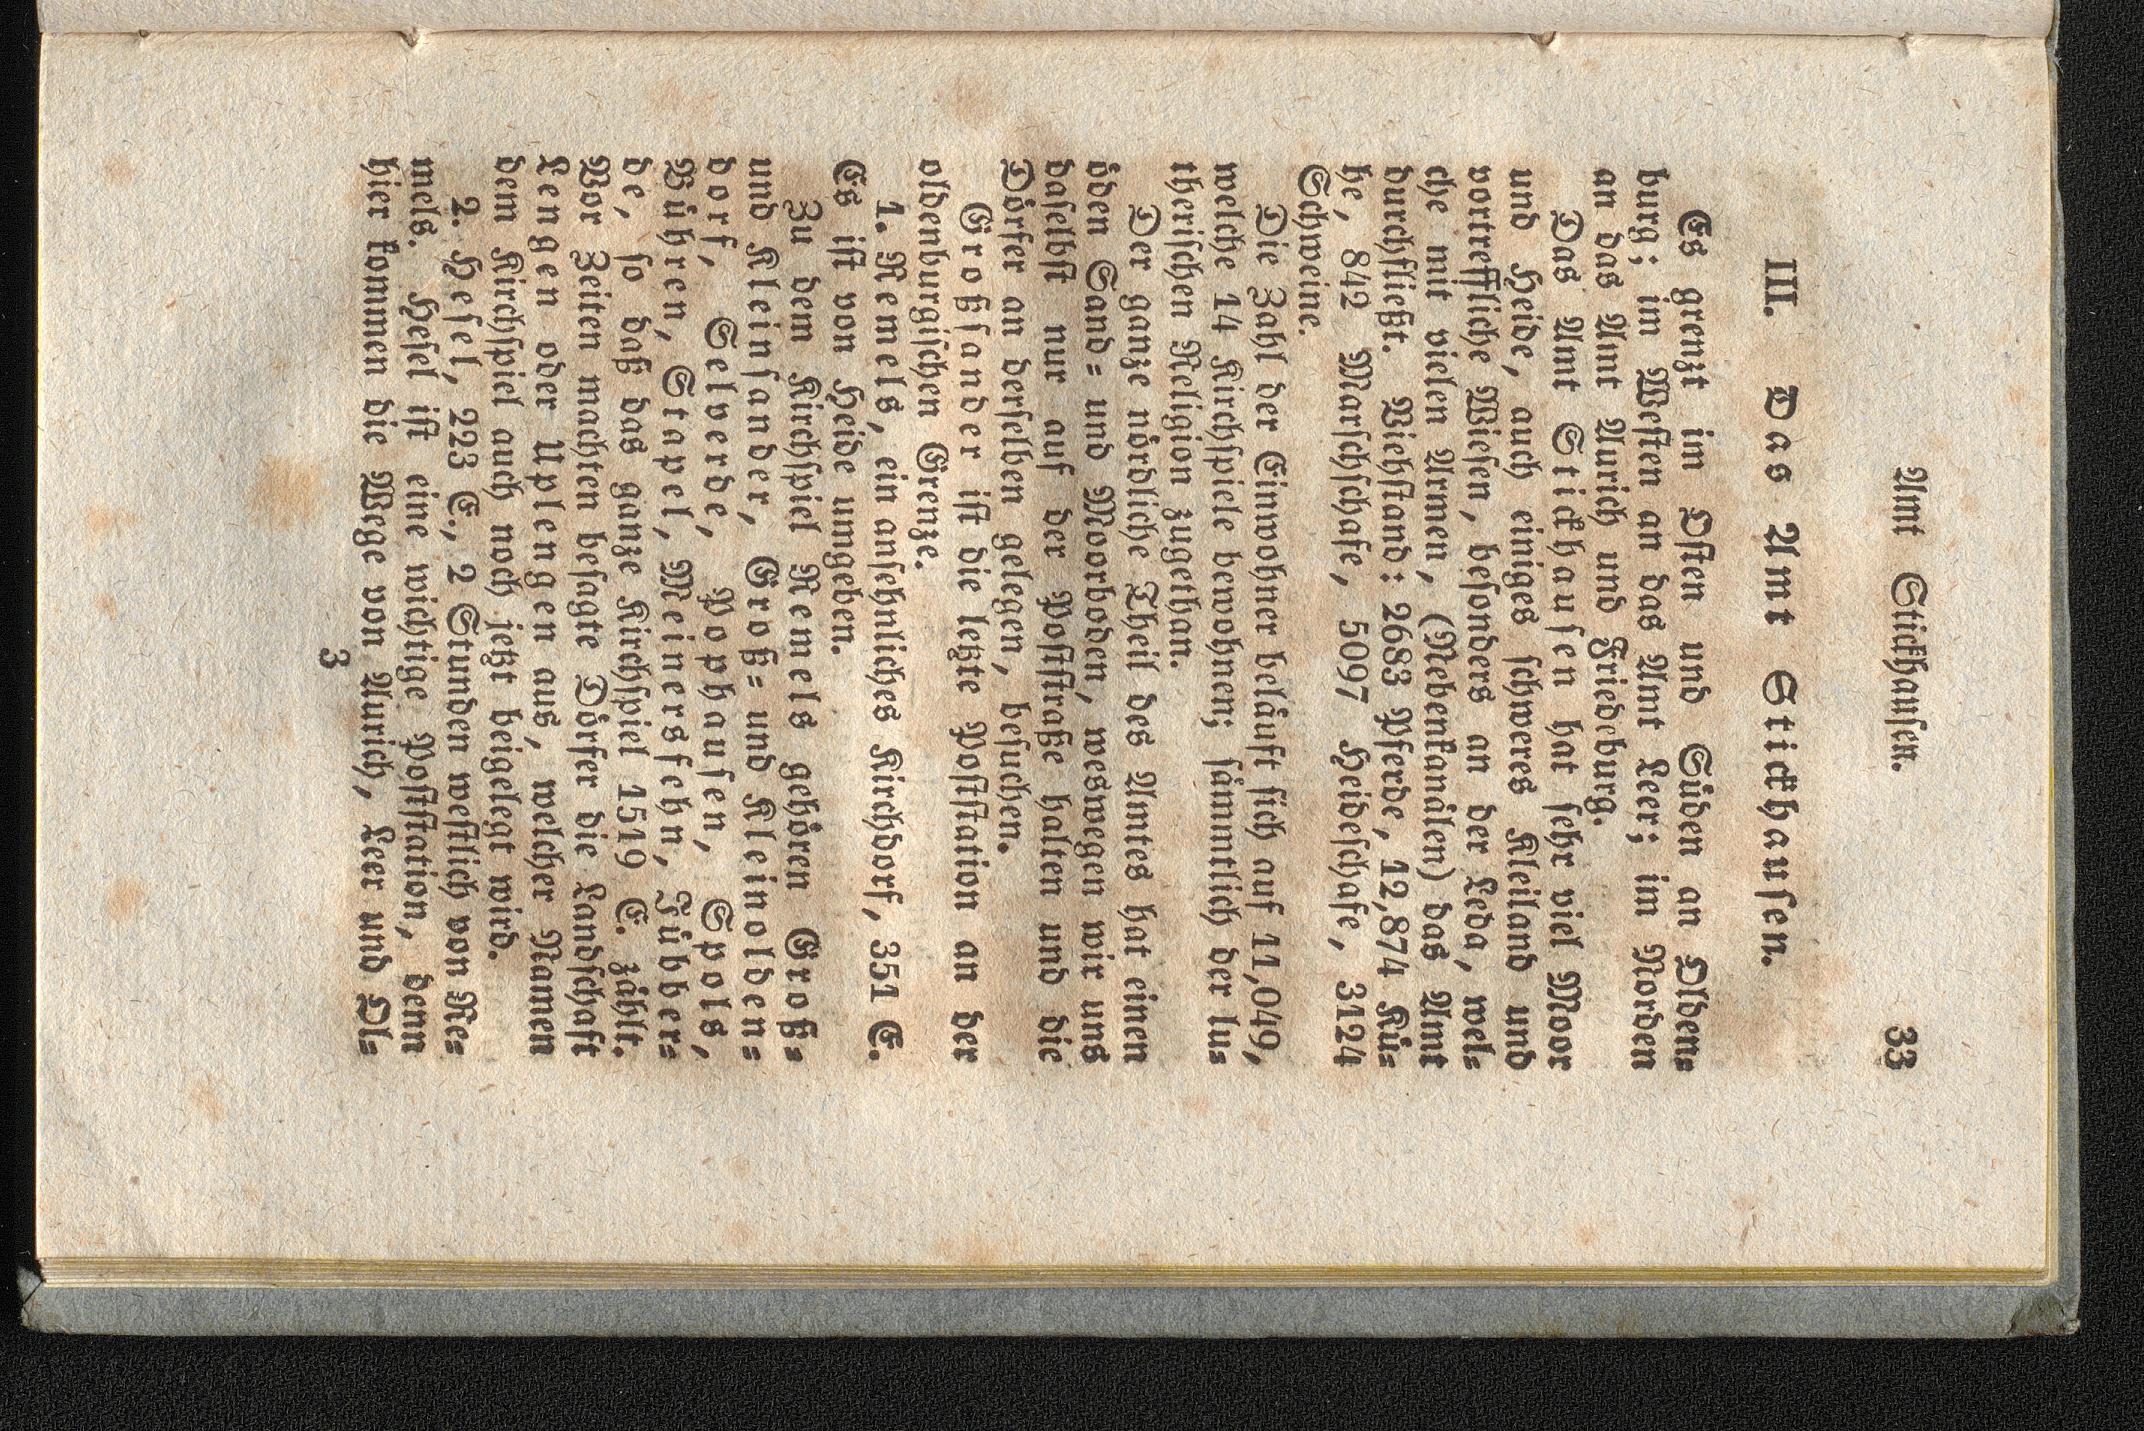 Amt Stickhausen. 33
III. Das Amt Stickhausen.
Es grenzt im Osten und Süden an Olden=
burg; im Westen an das Amt Leer; im Norden
an das Amt Aurich und Friedeburg.
Das Amt Stickhausen hat sehr viel Moor
und Heide, auch einiges schweres Kleiland und
vortreffliche Wiesen, besonders an der Leda, wel=
che mit vielen Armen, (Nebenkanälen) das Amt
durchfließt. Viehstand: 2683 Pferde, 12,874 Kü=
he, 842 Marschschafe, 5097 Heideschafe, 3124
Schweine.
Die Zahl der Einwohner beläuft sich auf 11,049,
welche 14 Kirchspiele bewohnen; sämmtlich der lu=
therischen Religion zugethan.
Der ganze nördliche Theil des Amtes hat einen
öden Sand= und Moorboden, weswegen wir uns
daselbst nur auf der Poststraße halten und die
Dörfer an derselben gelegen, besuchen.
Großsander ist die letzte Poststation an der
oldenburgischen Grenze.
1. Remels, ein ansehnliches Kirchdorf, 351 E.
Es ist von Heide umgeben.
Zu dem Kirchspiel Remels gehören Groß=
und Kleinsander, Groß= und Kleinolden=
dorf, Selverde, Pophausen, Spols,
Bühren, Stapel, Meinersfehn, Jübber=
de, so daß das ganze Kirchspiel 1519 E. zählt.
Vor Zeiten machten besagte Dörfer die Landschaft
Lengen oder Uplengen aus, welcher Namen
dem Kirchspiel auch noch jetzt beigelegt wird.
2. Hesel, 223 E., 2 Stunden westlich von Re=
mels. Hesel ist eine wichtige Poststation, denn
hier kommen die Wege von Aurich, Leer und Ol=
3